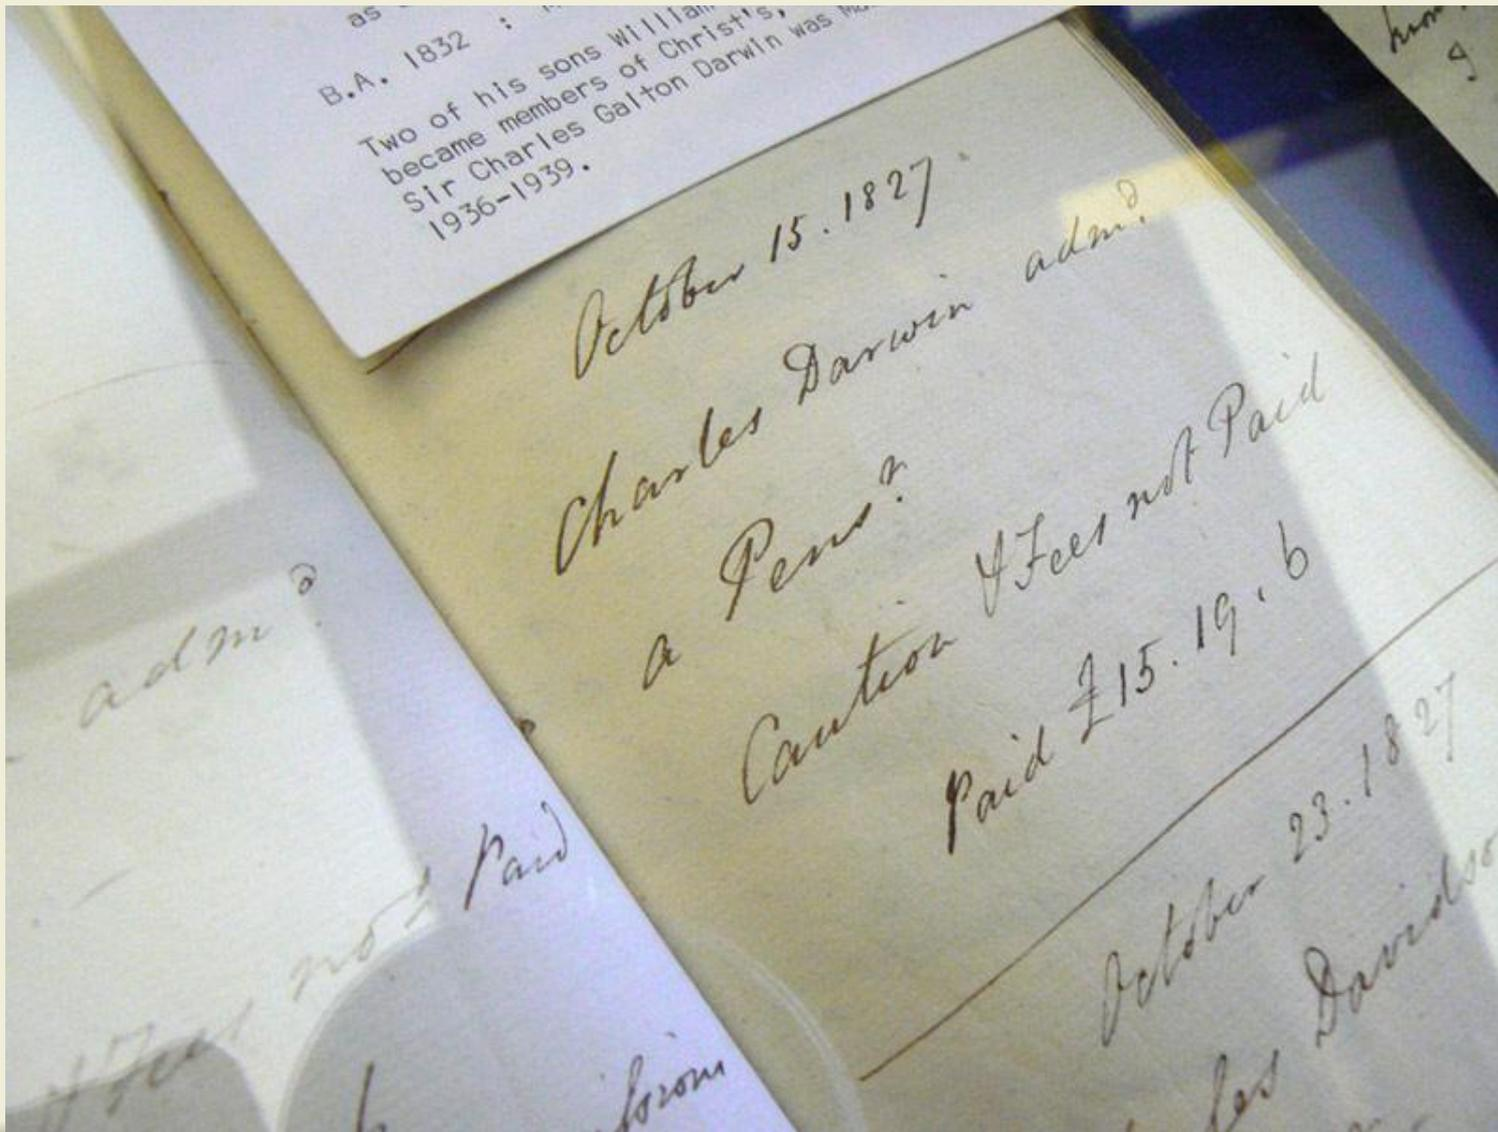 as
B.A. 1832 :
Two of his sons William
became members of Christ's,
Sir Charles Galton Darwin was
1936-1939.
October 15. 1827
Charles Darwin admd.
a Pensr.
Caution & Fees not Paid
Paid £15. 19. 6
October 23. 1827
Davidso
admd.
& Fees not Paid